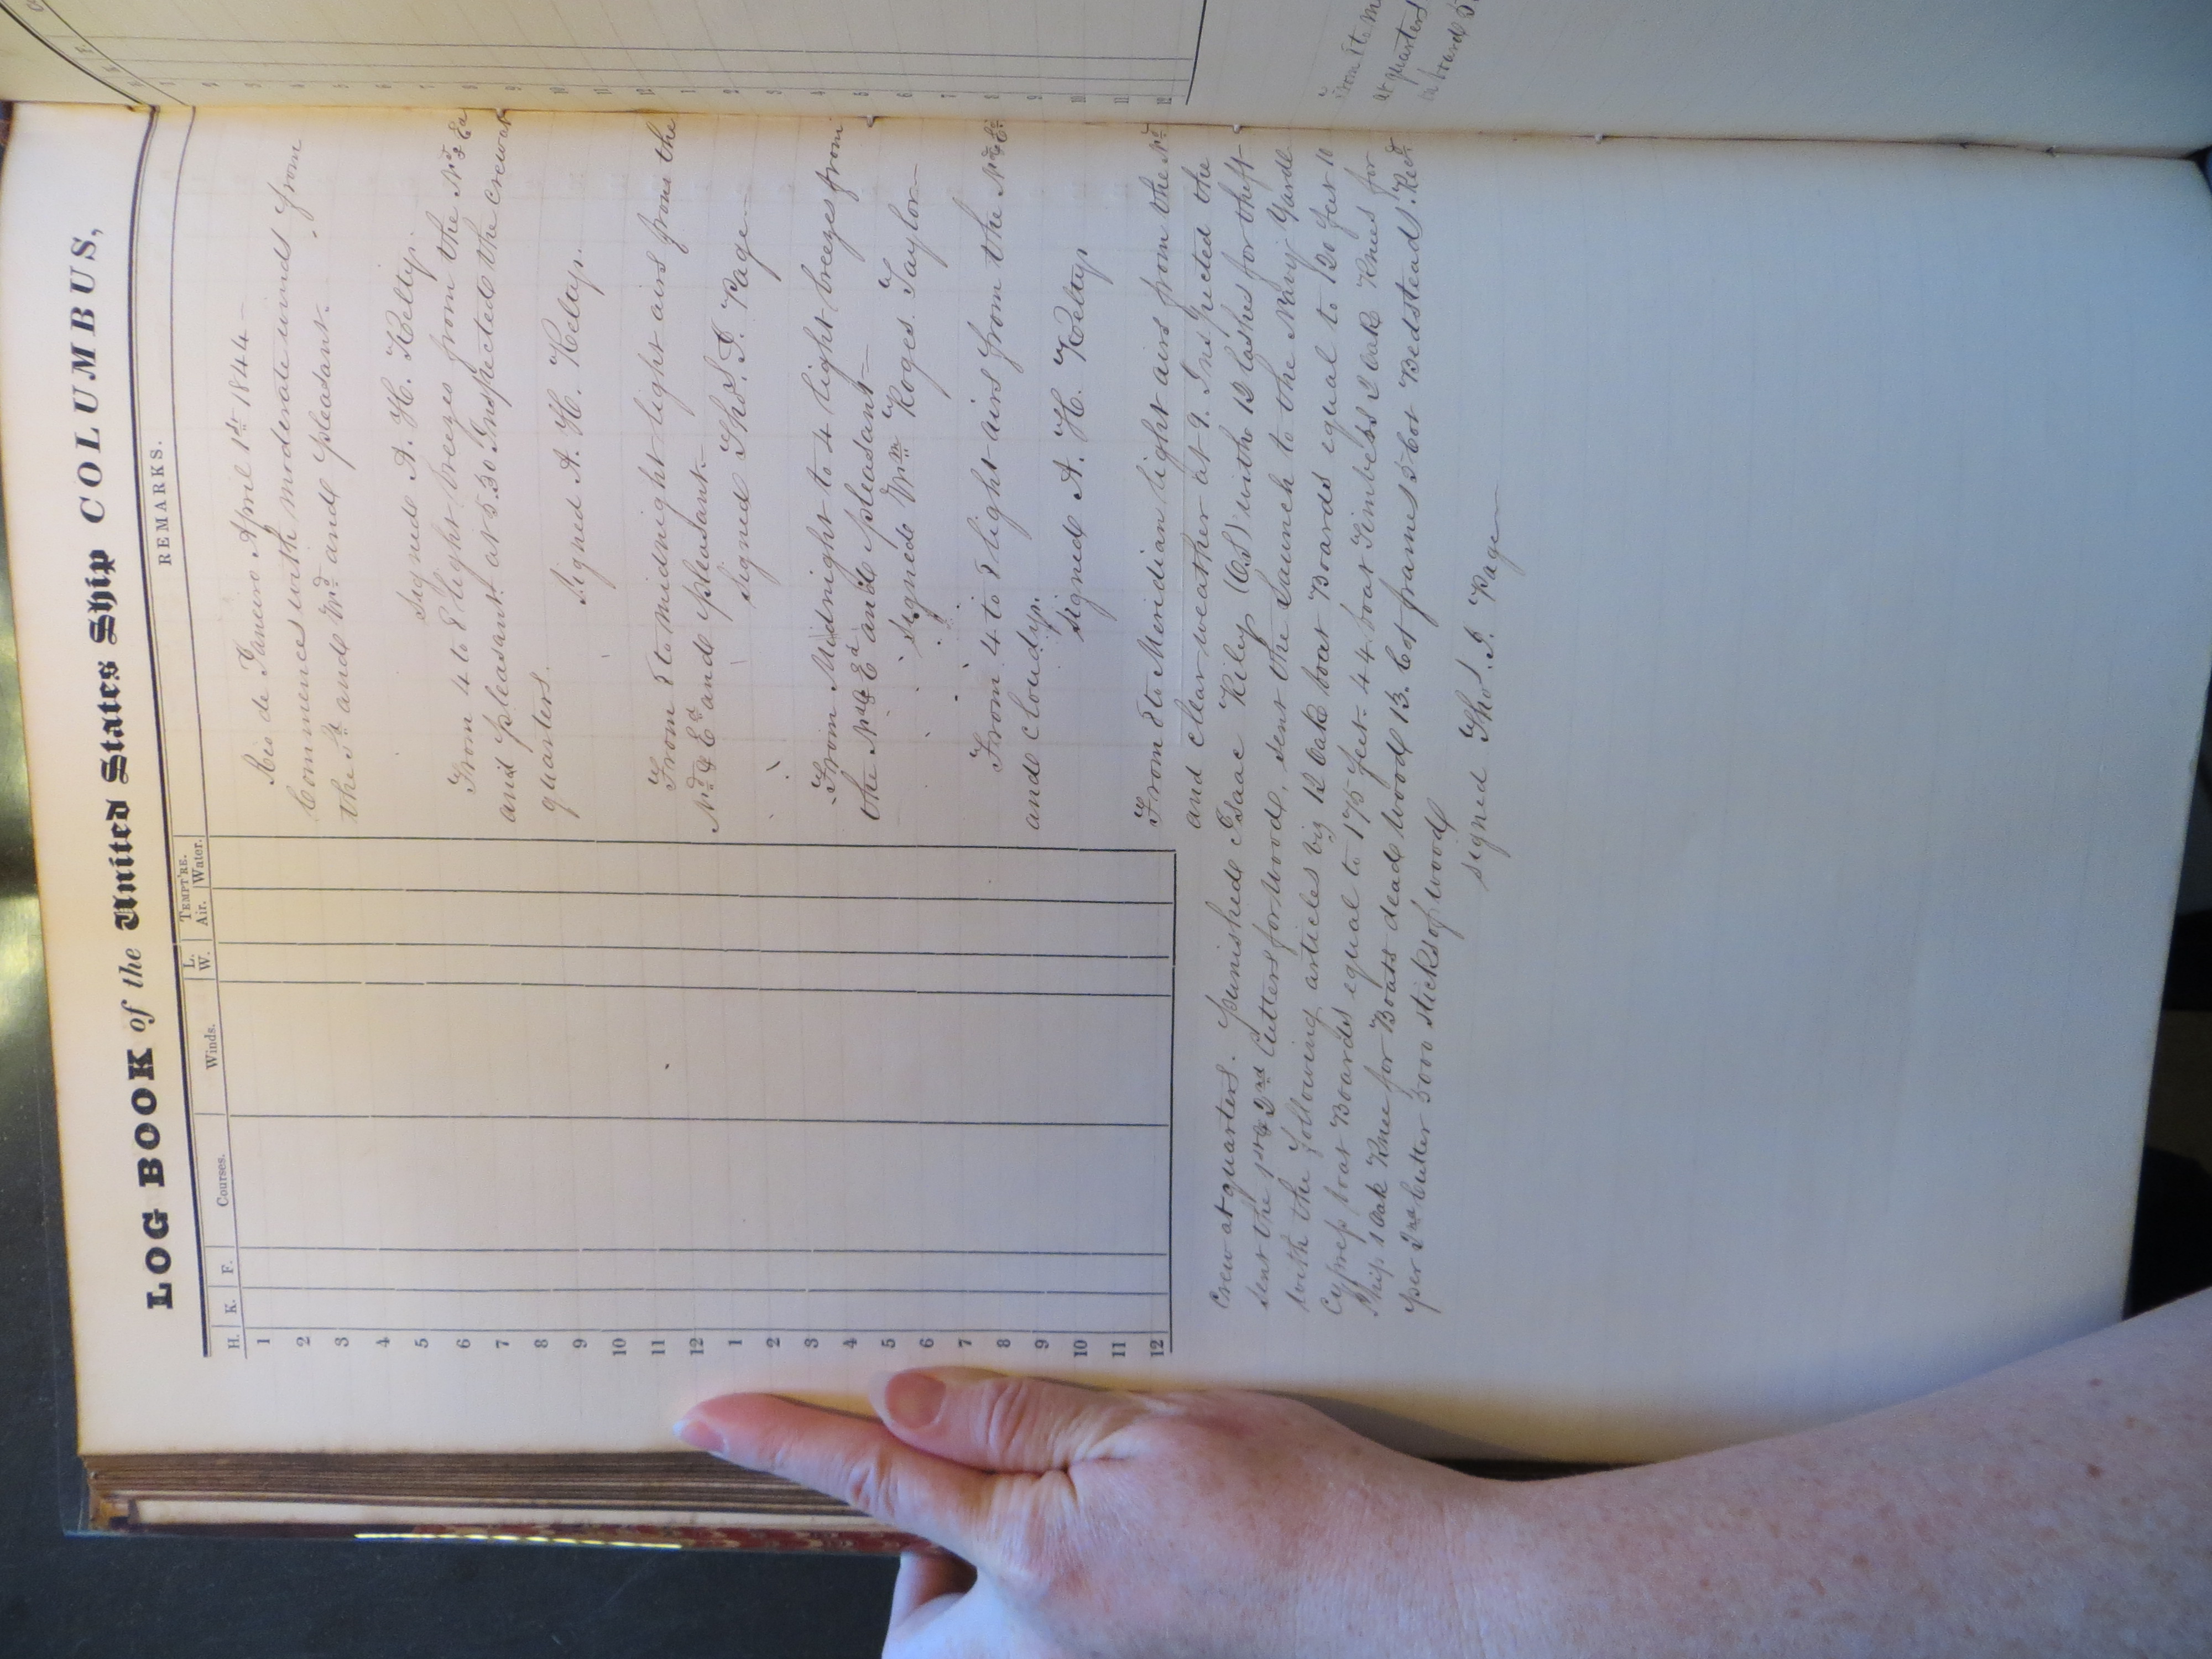 LOG BOOK of the United States Ship COLUMBUS,
H. K. F. Courses. Winds. L. W. TEMPT'RE. Air. Water. REMARKS.
1
2
3
4
5
6
7
8
9
10
11
12
1
2
3
4
5
6
7
8
9
10
11
12
Rio de Janeiro April 1st 1844 –
Commences with moderate winds from
the Sd and Wd and pleasant.
Signed A. H. Kelty.
From 4 to 8 light breezes from the Nd & Ed
and pleasant at 5.30 Inspected the crew at
quarters.
Signed A. H. Kelty.
From 8 to midnight light airs from the
Nd & Ed and pleasant.
Signed Thos. J. Page
From Midnight to 4 light breezes from
the Nd & Ed and pleasant –
Signed Wm Roges. Taylor –
From 4 to 8 light airs from the Nd & Ed
and cloudy.
Signed A. H. Kelty
From 8 to Meridian light airs from the Nd
and clear weather at 9. Inspected the
Crew at quarters. punished Isaac Riley (OS) with 12 lashes for theft –
sent the 1st & 2nd Cutters for wood, sent the Launch to the Navy Yard
with the following articles viz 12 Oak boat Boards equal to 120 feet 10
Cypress boat Boards equal to 175 feet. 44 boat Timbers 2 Oak Knees for
Ship 1 Oak Knee for Boats dead wood 13. Cot frames 5 Cot Bedsteads. Recd
per 2nd Cutter 3000 sticks of wood
signed Thos. J. Page
at quarters
on board